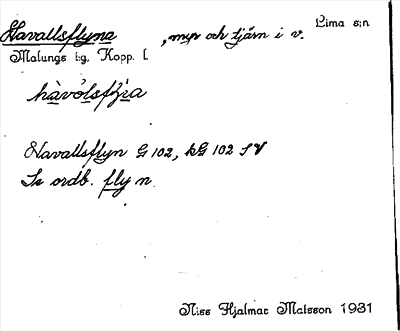 Havallsflyna , myr och tjärn i v. Lima s:n
Malungs tg. Kopp. l.
Havallsflyn G 102, kG 102 S V
Se ordb. fly n.
Nils Hjalmar Matsson 1931